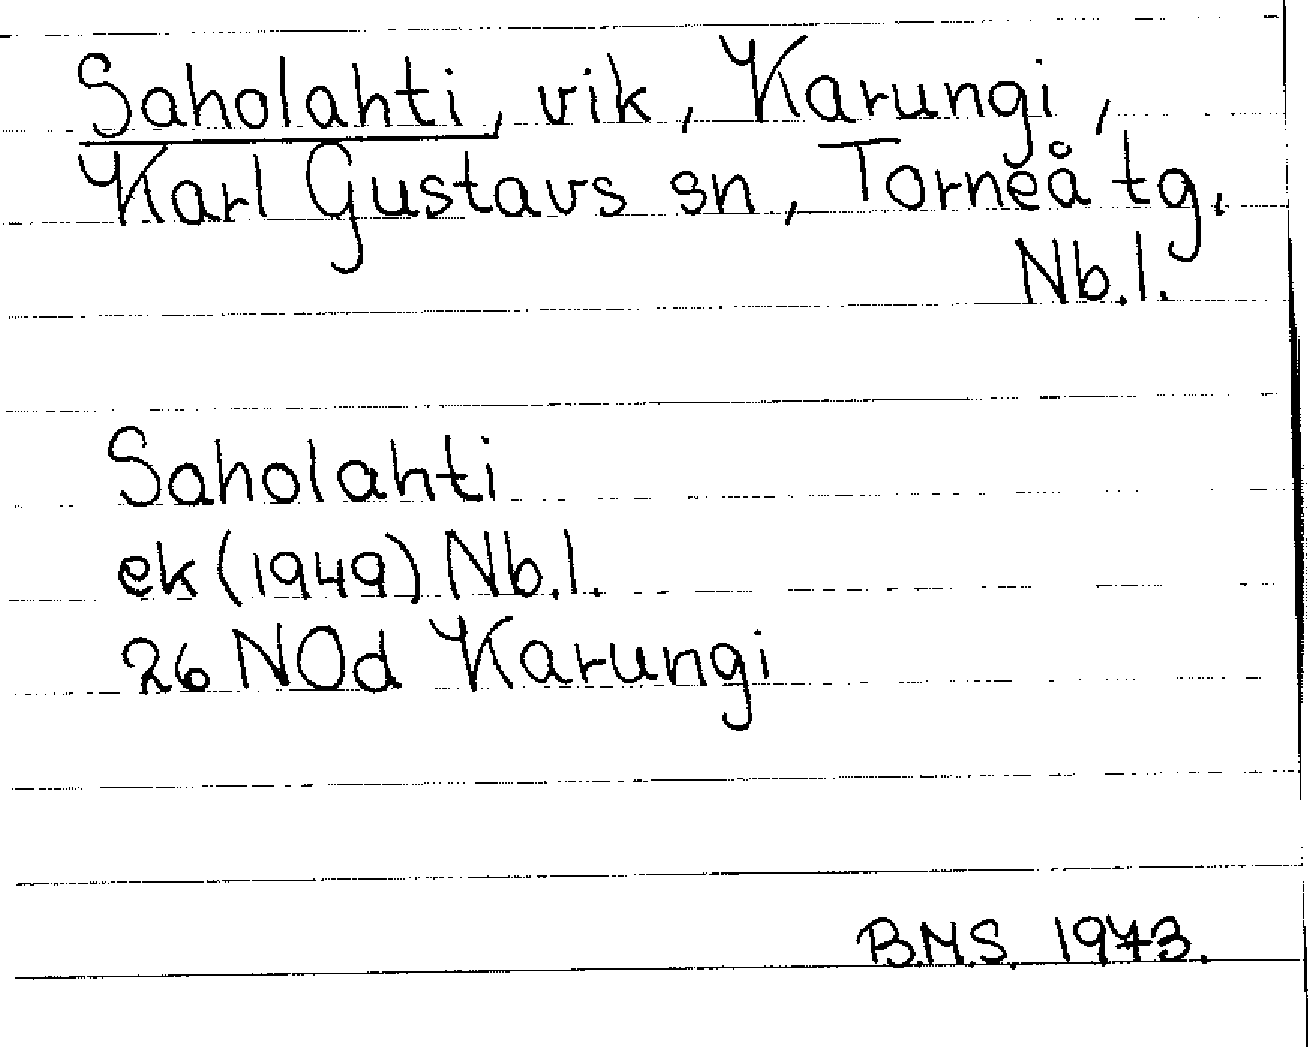 Saholahti, vik, Karungi,
Karl Gustavs sn, Torneå tg.
Nb.l.
Saholahti
ek (1949) Nb.l.
26 NOd Karungi
B.M.S. 1973.